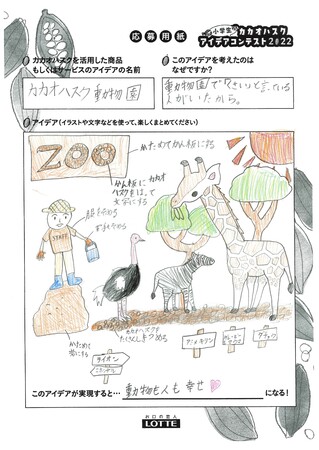 応募用紙
小学生
カカオハスク
アイデアコンテスト2022
カカオハスクを活用した商品
もしくはサービスのアイデアの名前
カカオハスク動物園
このアイデアを考えたのは
なぜですか?
動物園で「くさい」と言っている
人がいたから。
アイデア(イラストや文字などを使って、楽しくまとめてください)
ZOO
かためてかん板にする
かん板に カカオ
ハスクをはって
文字にする
服をそめる
STAFF
カカオハスクを
たくさんしきつめる
かためて
岩にする
ライオン
ダチョウ
このアイデアが実現すると…
動物も人も幸せ
になる!
お口の恋人
LOTTE